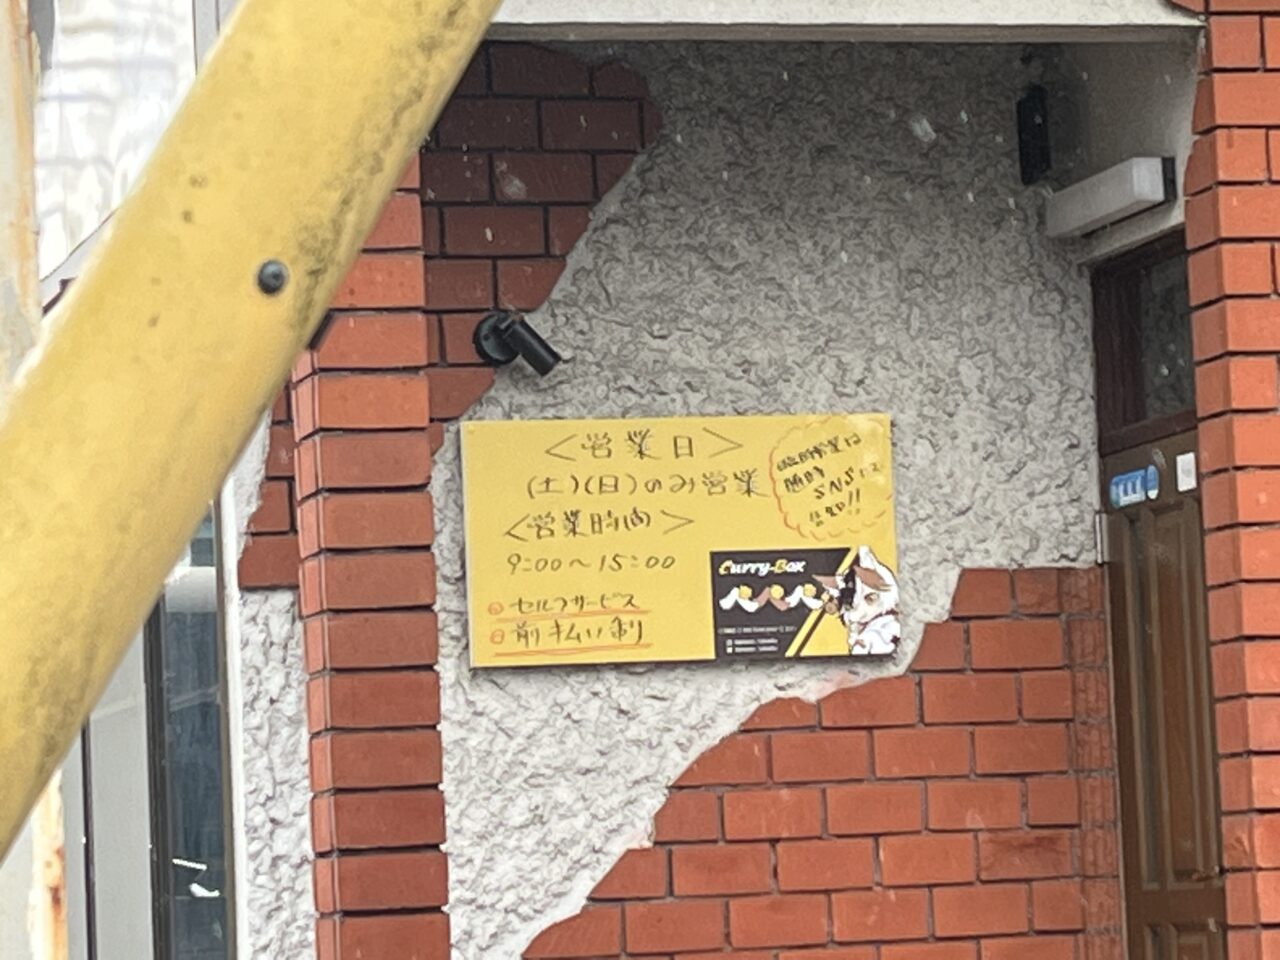 <営業日>
(土)(日)のみ営業
<営業時間>
9:00〜15:00
セルフサービス
前払い制
臨時営業は
随時
SNSにて
告知!!
Curry-Box